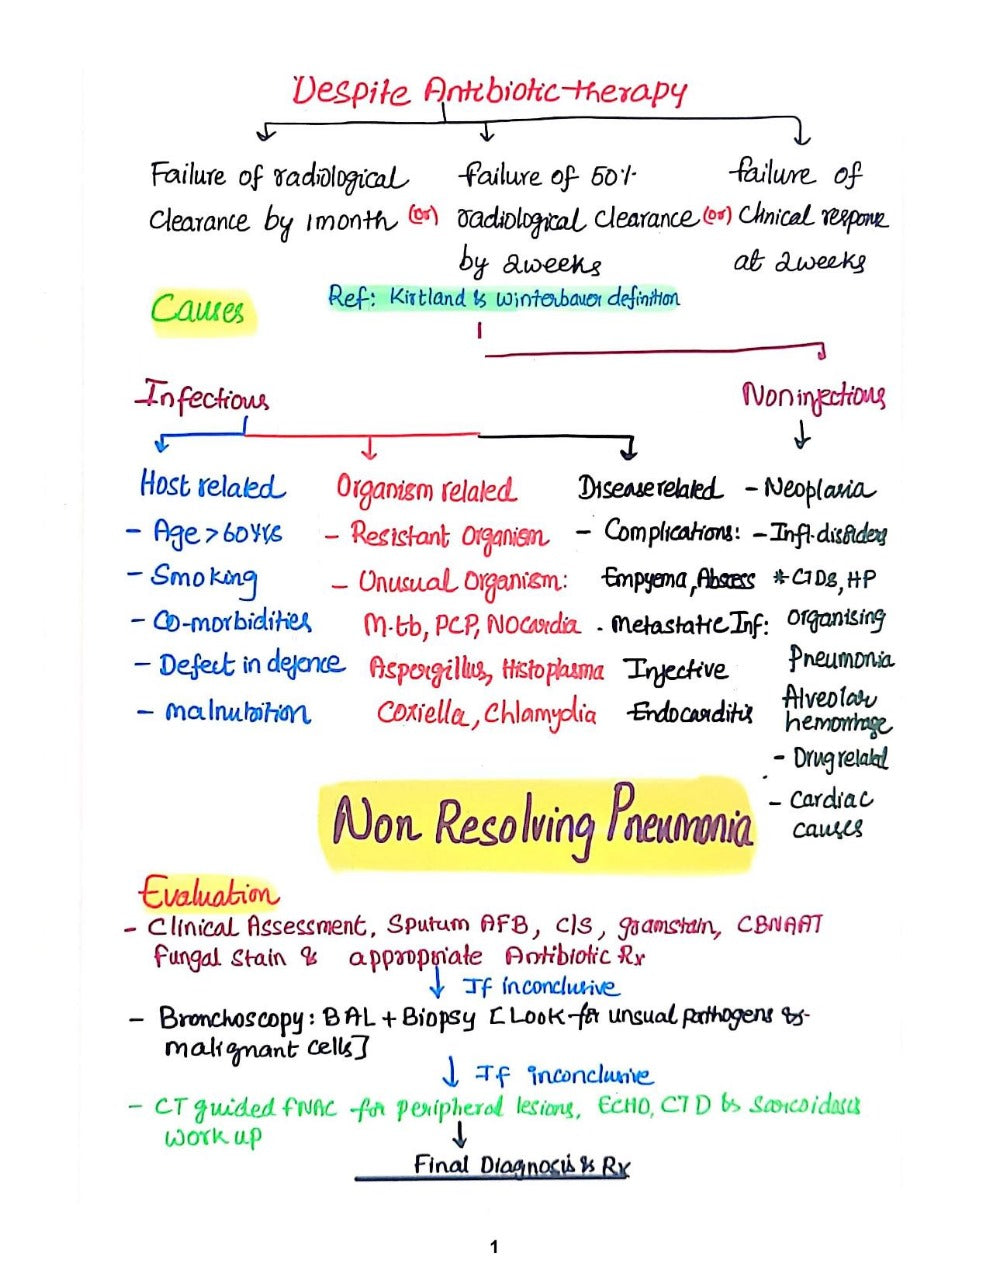 Despite Antibiotic therapy
Failure of radiological clearance by 1 month (or)
failure of 50% radiological clearance by 2 weeks (or)
failure of clinical response at 2 weeks
Ref: Kirtland & Winterbauer definition
Causes
Infectious
Non infectious
Host related
- Age > 60 yrs
- Smoking
- Co-morbidities
- Defect in defence
- malnutrition
Organism related
- Resistant Organism
- Unusual Organism:
M.tb, PCP, Nocardia
Aspergillus, Histoplasma
Coxiella, Chlamydia
Disease related
- Complications:
Empyema, Abscess
. Metastatic Inf:
Infective
Endocarditis
- Neoplasia
- Infl. disorders
* CTDs, HP
Organising
Pneumonia
Alveolar
hemorrhage
- Drug related
- Cardiac
causes
Non Resolving Pneumonia
Evaluation
- Clinical Assessment, Sputum AFB, C/S, gramstain, CBNAAT
Fungal Stain & appropriate Antibiotic Rx
If inconclusive
- Bronchoscopy: BAL + Biopsy [Look for unsual pathogens &
malignant cells]
If inconclusive
- CT guided FNAC for peripheral lesions, ECHO, CTD & Sarcoidosis
work up
Final Diagnosis & Rx
1